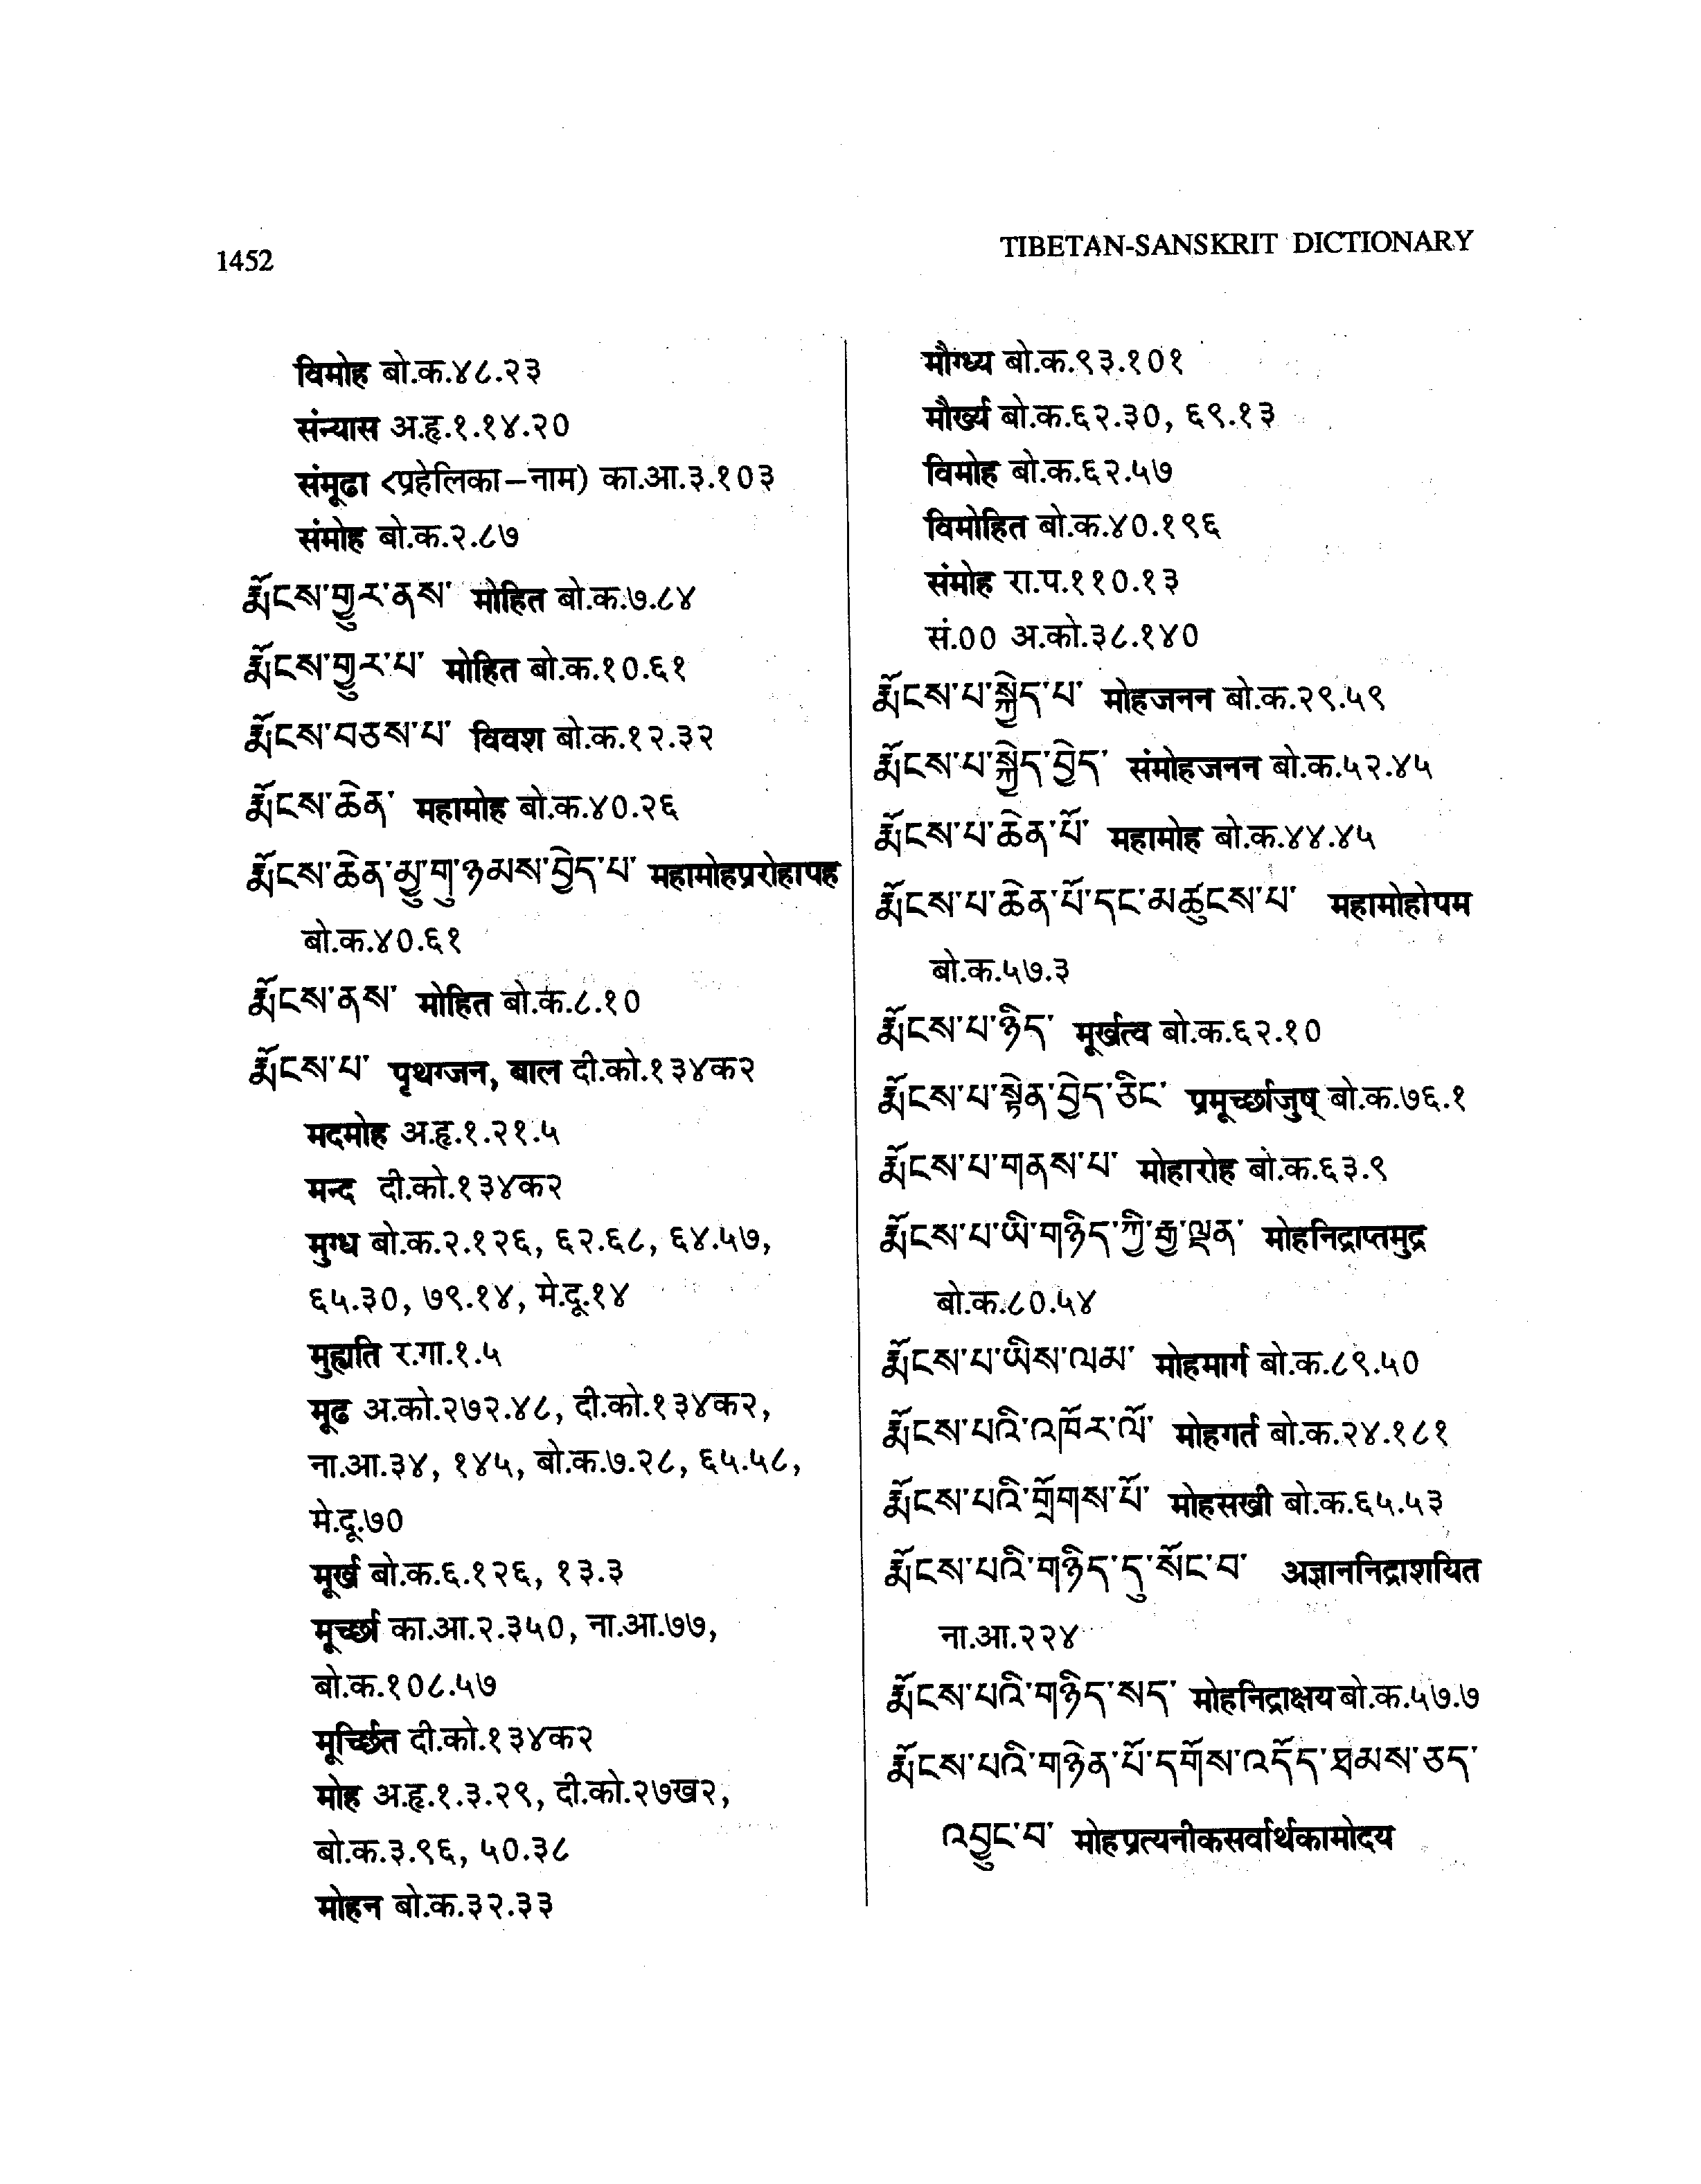 1452
TIBETAN-SANSKRIT DICTIONARY
विमोह बो.क.४८.२३
संन्यास अ.हृ.१.१४.२०
संमूढा <प्रहेलिका–नाम) का.आ.३.१०३
संमोह बो.क.२.८७
རྨོངས་གྱུར་ནས་ मोहित बो.क.७.८४
རྨོངས་གྱུར་པ་ मोहित बो.क.१०.६१
རྨོངས་བཅས་པ་ विवश बो.क.१२.३२
རྨོངས་ཆེན་ महामोह बो.क.४०.२६
རྨོངས་ཆེན་མྱུ་གུ་ཉམས་བྱེད་པ་ महामोहप्ररोहापह
बो.क.४०.६१
རྨོངས་ནས་ मोहित बो.क.८.१०
རྨོངས་པ་ पृथग्जन, बाल दी.को.१३४क२
मदमोह अ.हृ.१.२१.५
मन्द दी.को.१३४क२
मुग्ध बो.क.२.१२६, ६२.६८, ६४.५७,
६५.३०, ७९.१४, मे.दू.१४
मुह्यति र.गा.१.५
मूढ अ.को.२७२.४८, दी.को.१३४क२,
ना.आ.३४, १४५, बो.क.७.२८, ६५.५८,
मे.दू.७०
मूर्ख बो.क.६.१२६, १३.३
मूर्च्छा का.आ.२.३५०, ना.आ.७७,
बो.क.१०८.५७
मूर्च्छित दी.को.१३४क२
मोह अ.हृ.१.३.२९, दी.को.२७ख२,
बो.क.३.९६, ५०.३८
मोहन बो.क.३२.३३
मौग्ध्य बो.क.९३.१०१
मौर्ख्य बो.क.६२.३०, ६९.१३
विमोह बो.क.६२.५७
विमोहित बो.क.४०.१९६
संमोह रा.प.११०.१३
सं.०० अ.को.३८.१४०
རྨོངས་པ་སྐྱེད་པ་ मोहजनन बो.क.२९.५९
རྨོངས་པ་སྐྱེད་བྱེད་ संमोहजनन बो.क.५२.४५
རྨོངས་པ་ཆེན་པོ་ महामोह बो.क.४४.४५
རྨོངས་པ་ཆེན་པོ་དང་མཚུངས་པ་ महामोहोपम
बो.क.५७.३
རྨོངས་པ་ཉིད་ मूर्खत्व बो.क.६२.१०
རྨོངས་པ་སྟེན་བྱེད་ཅིང་ प्रमूर्च्छाजुष् बो.क.७६.१
རྨོངས་པ་གནས་པ་ मोहारोह बो.क.६३.९
རྨོངས་པ་ཡི་གཉིད་ཀྱི་རྒྱ་ལྡན་ मोहनिद्राप्तमुद्र
बो.क.८०.५४
རྨོངས་པ་ཡིས་ལམ་ मोहमार्ग बो.क.८९.५०
རྨོངས་པའི་འཁོར་ལོ་ मोहगर्त बो.क.२४.१८१
རྨོངས་པའི་གྲོགས་པོ་ मोहसखी बो.क.६५.५३
རྨོངས་པའི་གཉིད་དུ་སོང་བ་ अज्ञाननिद्राशयित
ना.आ.२२४
རྨོངས་པའི་གཉིད་སད་ मोहनिद्राक्षय बो.क.५७.७
རྨོངས་པའི་གཉེན་པོ་དགོས་འདོད་ཐམས་ཅད་
འབྱུང་བ་ मोहप्रत्यनीकसर्वार्थकामोदय